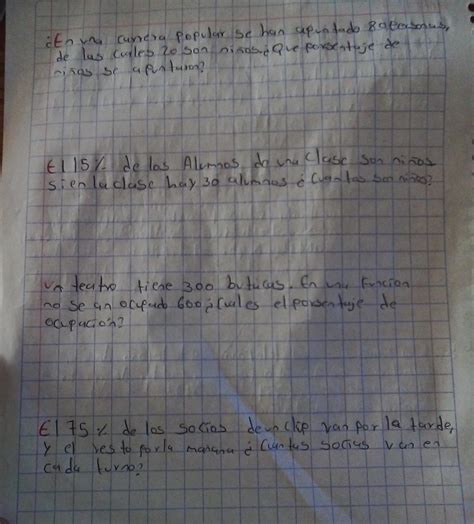 ¿En una carrera popular se han apuntado 80 personas,
de las cuales 20 son niños ¿Que porsentaje de
niños se apuntaron?
El 15% de los Alumnos de una Clase son niños
si en la clase hay 30 alumnos ¿Cuantos son niños?
Un teatro tiene 300 butucas. En una funcion
no se an ocupado 600 ¿Cual es el porsentaje de
ocupación?
El 75% de los socios de un van por la tarde,
y el resto por la manana ¿Cuantus socius van en
cada turno?